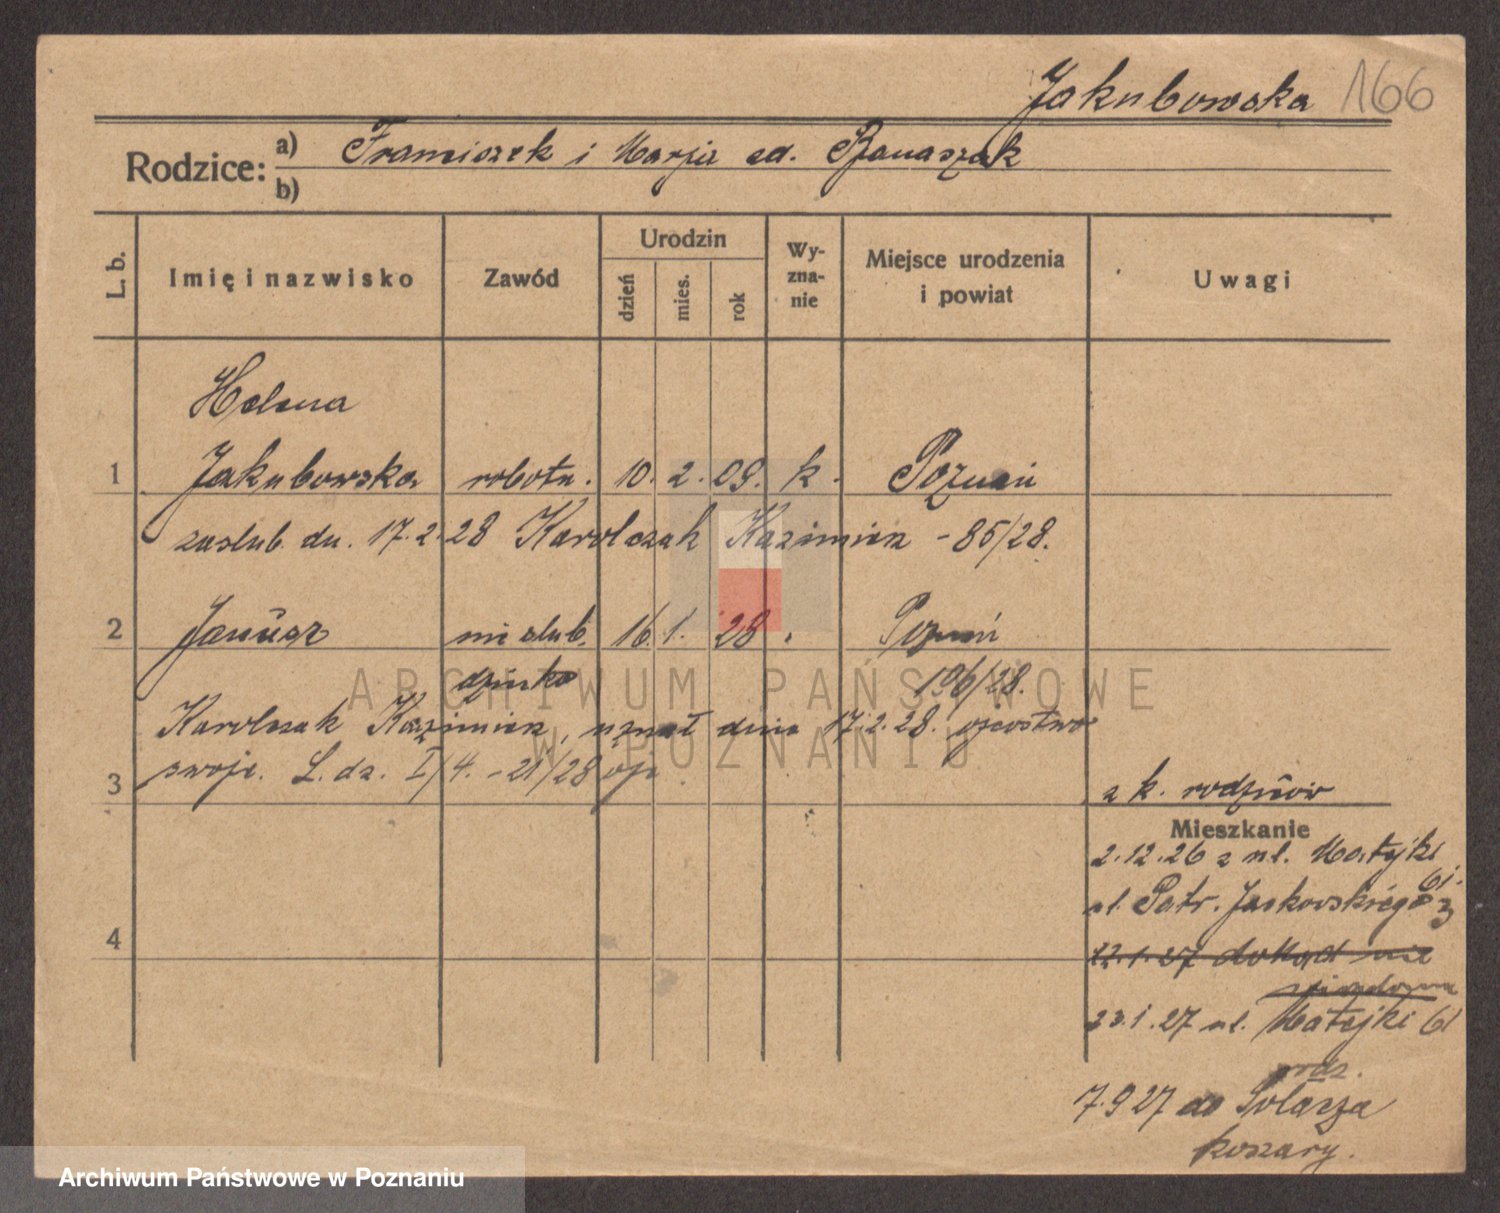 Jakubowska 166
Rodzice: a) Franciszek i Marja ad. Banaszak
b)
L. b. Imię i nazwisko Zawód Urodzin dzień mies. rok Wyznanie Miejsce urodzenia i powiat Uwagi
Helena
1 Jakubowska robotn. 10. 2. 09. k. Poznań
zaslub. dn. 17.2.28 Karolczak Kazimierz - 85/28.
2 Janusz nieslub. 16. 1. 28. Poznań
dziecko 196/28.
Karolczak Kazimierz, uznał dnia 17.2.28. ojcostwo
swoje. L. dz. I/4. - 21/28
3 z k. rodziców
Mieszkanie
2.12.26 z ul. Matejki 61.
ul. Patr. Jackowskiego 3
4 12.1.27 dokąd nie
wiadomo
23.1.27 ul. Matejki 61
rodz.
7.9 27 do Sołacza
koszary.
ARCHIWUM PAŃSTWOWE
W POZNANIU
Archiwum Państwowe w Poznaniu